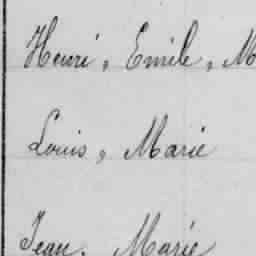 Henri, Emile, M
Louis, Marie
Jean, Marie